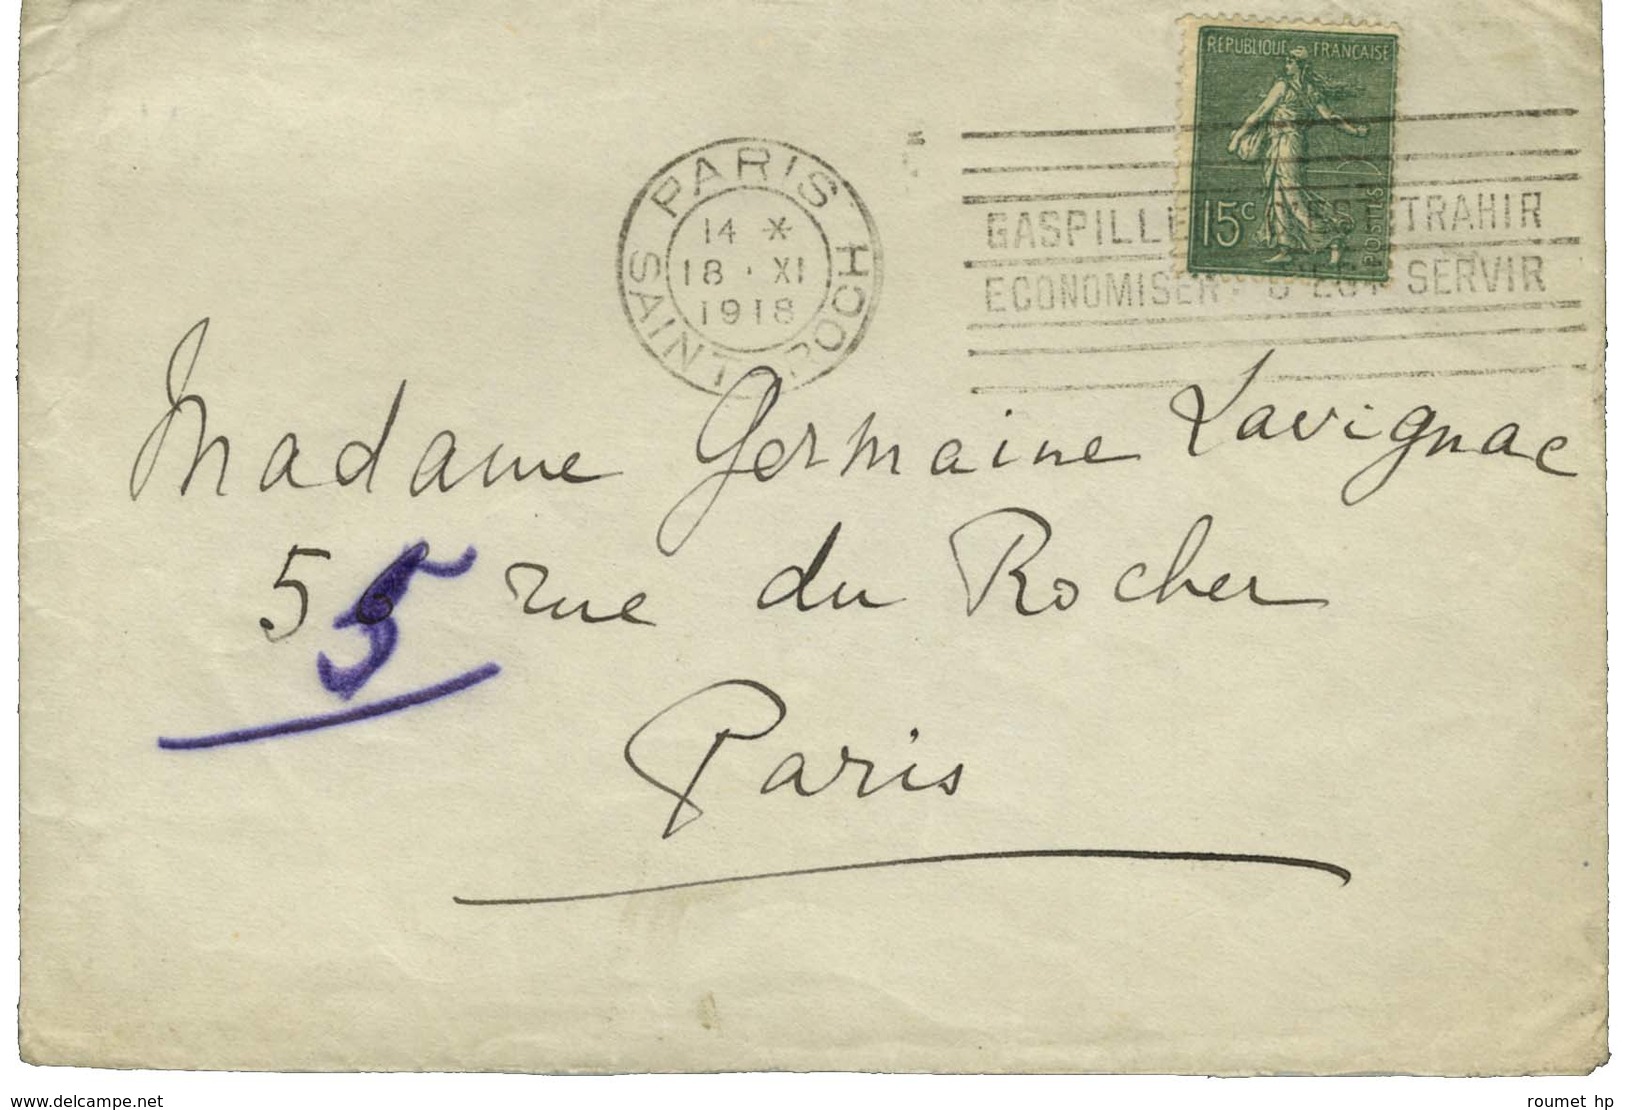 RÉPUBLIQUE FRANÇAISE
15c
POSTES
PARIS
SAINT ROCH
14 *
18 · XI
1918
GASPILLE TRAHIR
ECONOMISER: C'EST SERVIR
Madame Germaine Lavignac
56 rue du Rocher
5
Paris
www.delcampe.net
roumet hp